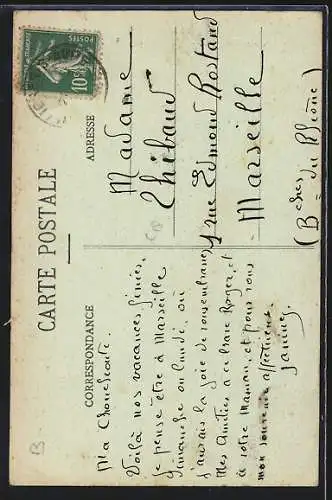 CARTE POSTALE
CORRESPONDANCE
ADRESSE
Ma Chouchoute
Voilà nos vacances finies,
je pense être à Marseille
dimanche ou lundi, où
j'aurais la joie de vous embrasser
Mes Amitiés à ce brave Roger, et
à votre Maman, et pour vous
mon souvenir affectueux.
Janine
Madame
Thibaud
rue Edmond Rostand
Marseille
(Bches du Rhône)
POSTES
10c